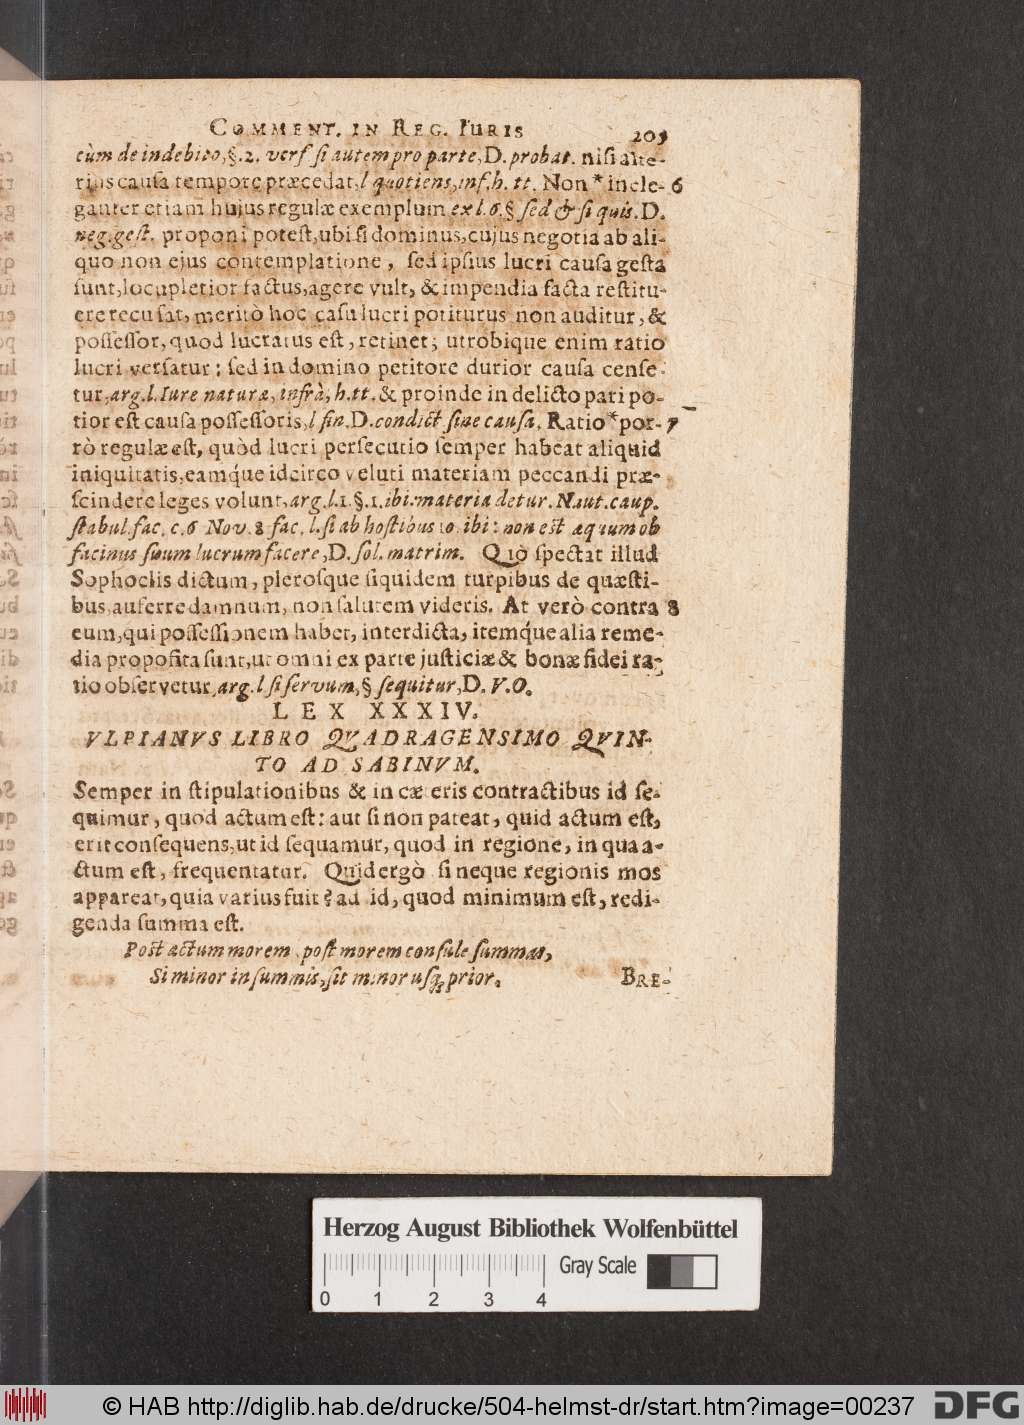 COMMENT. IN REG. IURIS 205
cùm de indebito, §. 2. verſ ſi autem pro parte, D. probat. niſi alte-
rius cauſa tempore præcedat, l quotiens, inf. h. tt. Non * inele- 6
ganter etiam hujus regulæ exemplum ex l. 6. § ſed & ſi quis. D.
neg. geſt. proponi poteſt, ubi ſi dominus, cujus negotia ab ali-
quo non ejus contemplatione, ſed ipſius lucri cauſa geſta
ſunt, locupletior factus, agere vult, & impendia facta reſtitu-
ere recuſat, meritò hoc caſu lucri potiturus non auditur, &
poſſeſſor, quod lucratus eſt, retinet; utrobique enim ratio
lucri verſatur: ſed in domino petitore durior cauſa cenſe-
tur, arg. l. Iure naturæ, infrà, h. tt. & proinde in delicto pari po-
tior eſt cauſa poſſeſſoris, l fin. D. condict ſine cauſa. Ratio * por- 7
rò regulæ eſt, quòd lucri perſecutio ſemper habeat aliquid
iniquitatis, eamq́ue idcirco veluti materiam peccandi præ-
ſcindere leges volunt, arg. l. 1. §. 1. ibi: materia detur. Naut. caup.
ſtabul. fac. c. 6 Nov. 8 fac. l. ſi ab hoſtibus 10. ibi: non est æquum ob
facinus ſuum lucrum facere, D. ſol. matrim. Quò ſpectat illud
Sophoclis dictum, pleroſque ſiquidem turpibus de quæſti-
bus, auferre damnum, non ſalutem videris. At verò contra 8
eum, qui poſſeſſionem habet, interdicta, itemq́ue alia reme-
dia propoſita ſunt, ut omni ex parte juſticiæ & bonæ fidei ra-
tio obſervetur, arg. l ſi ſervum, § ſequitur, D. V. O.
LEX XXXIV.
VLPIANVS LIBRO QVADRAGENSIMO QVIN-
TO AD SABINVM.
Semper in ſtipulationibus & in cæteris contractibus id ſe-
quimur, quod actum eſt: aut ſi non pateat, quid actum eſt,
erit conſequens, ut id ſequamur, quod in regione, in qua a-
ctum eſt, frequentatur. Quid ergò ſi neque regionis mos
appareat, quia varius fuit? ad id, quod minimum eſt, redi-
genda ſumma eſt.
Post actum morem, poſt morem conſule ſummas,
Si minor in ſummis, ſit minor uſq; prior.
BRE-
Herzog August Bibliothek Wolfenbüttel
Gray Scale
0 1 2 3 4
© HAB http://diglib.hab.de/drucke/504-helmst-dr/start.htm?image=00237
DFG